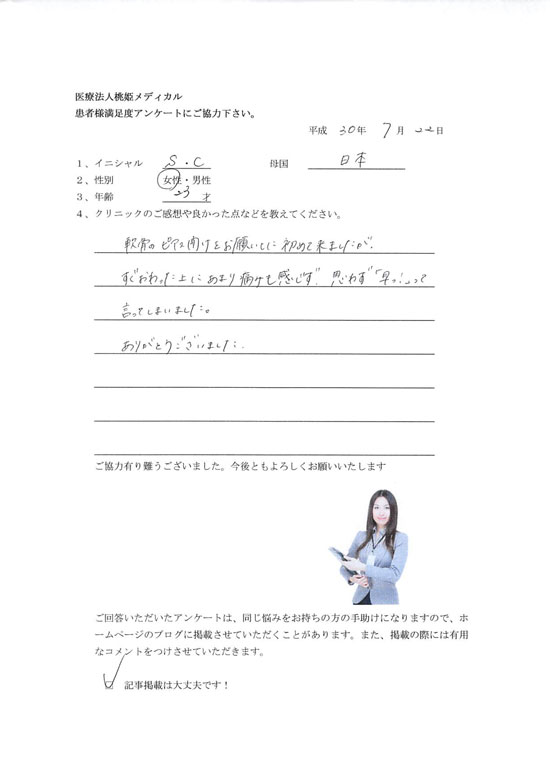 医療法人桃姫メディカル
患者様満足度アンケートにご協力下さい。
平成 30年 7月 22日
1、イニシャル S・C 母国 日本
2、性別 女性・男性
3、年齢 23 才
4、クリニックのご感想や良かった点などを教えてください。
軟骨のピアス開けをお願いしに初めて来ましたが、
すぐおわった上にあまり痛みも感じず、思わず「早っ!」って
言ってしまいました。
ありがとうございました。
ご協力有り難うございました。今後ともよろしくお願いいたします
ご回答いただいたアンケートは、同じ悩みをお持ちの方の手助けになりますので、ホ
ームページのブログに掲載させていただくことがあります。また、掲載の際には有用
なコメントをつけさせていただきます。
記事掲載は大丈夫です！